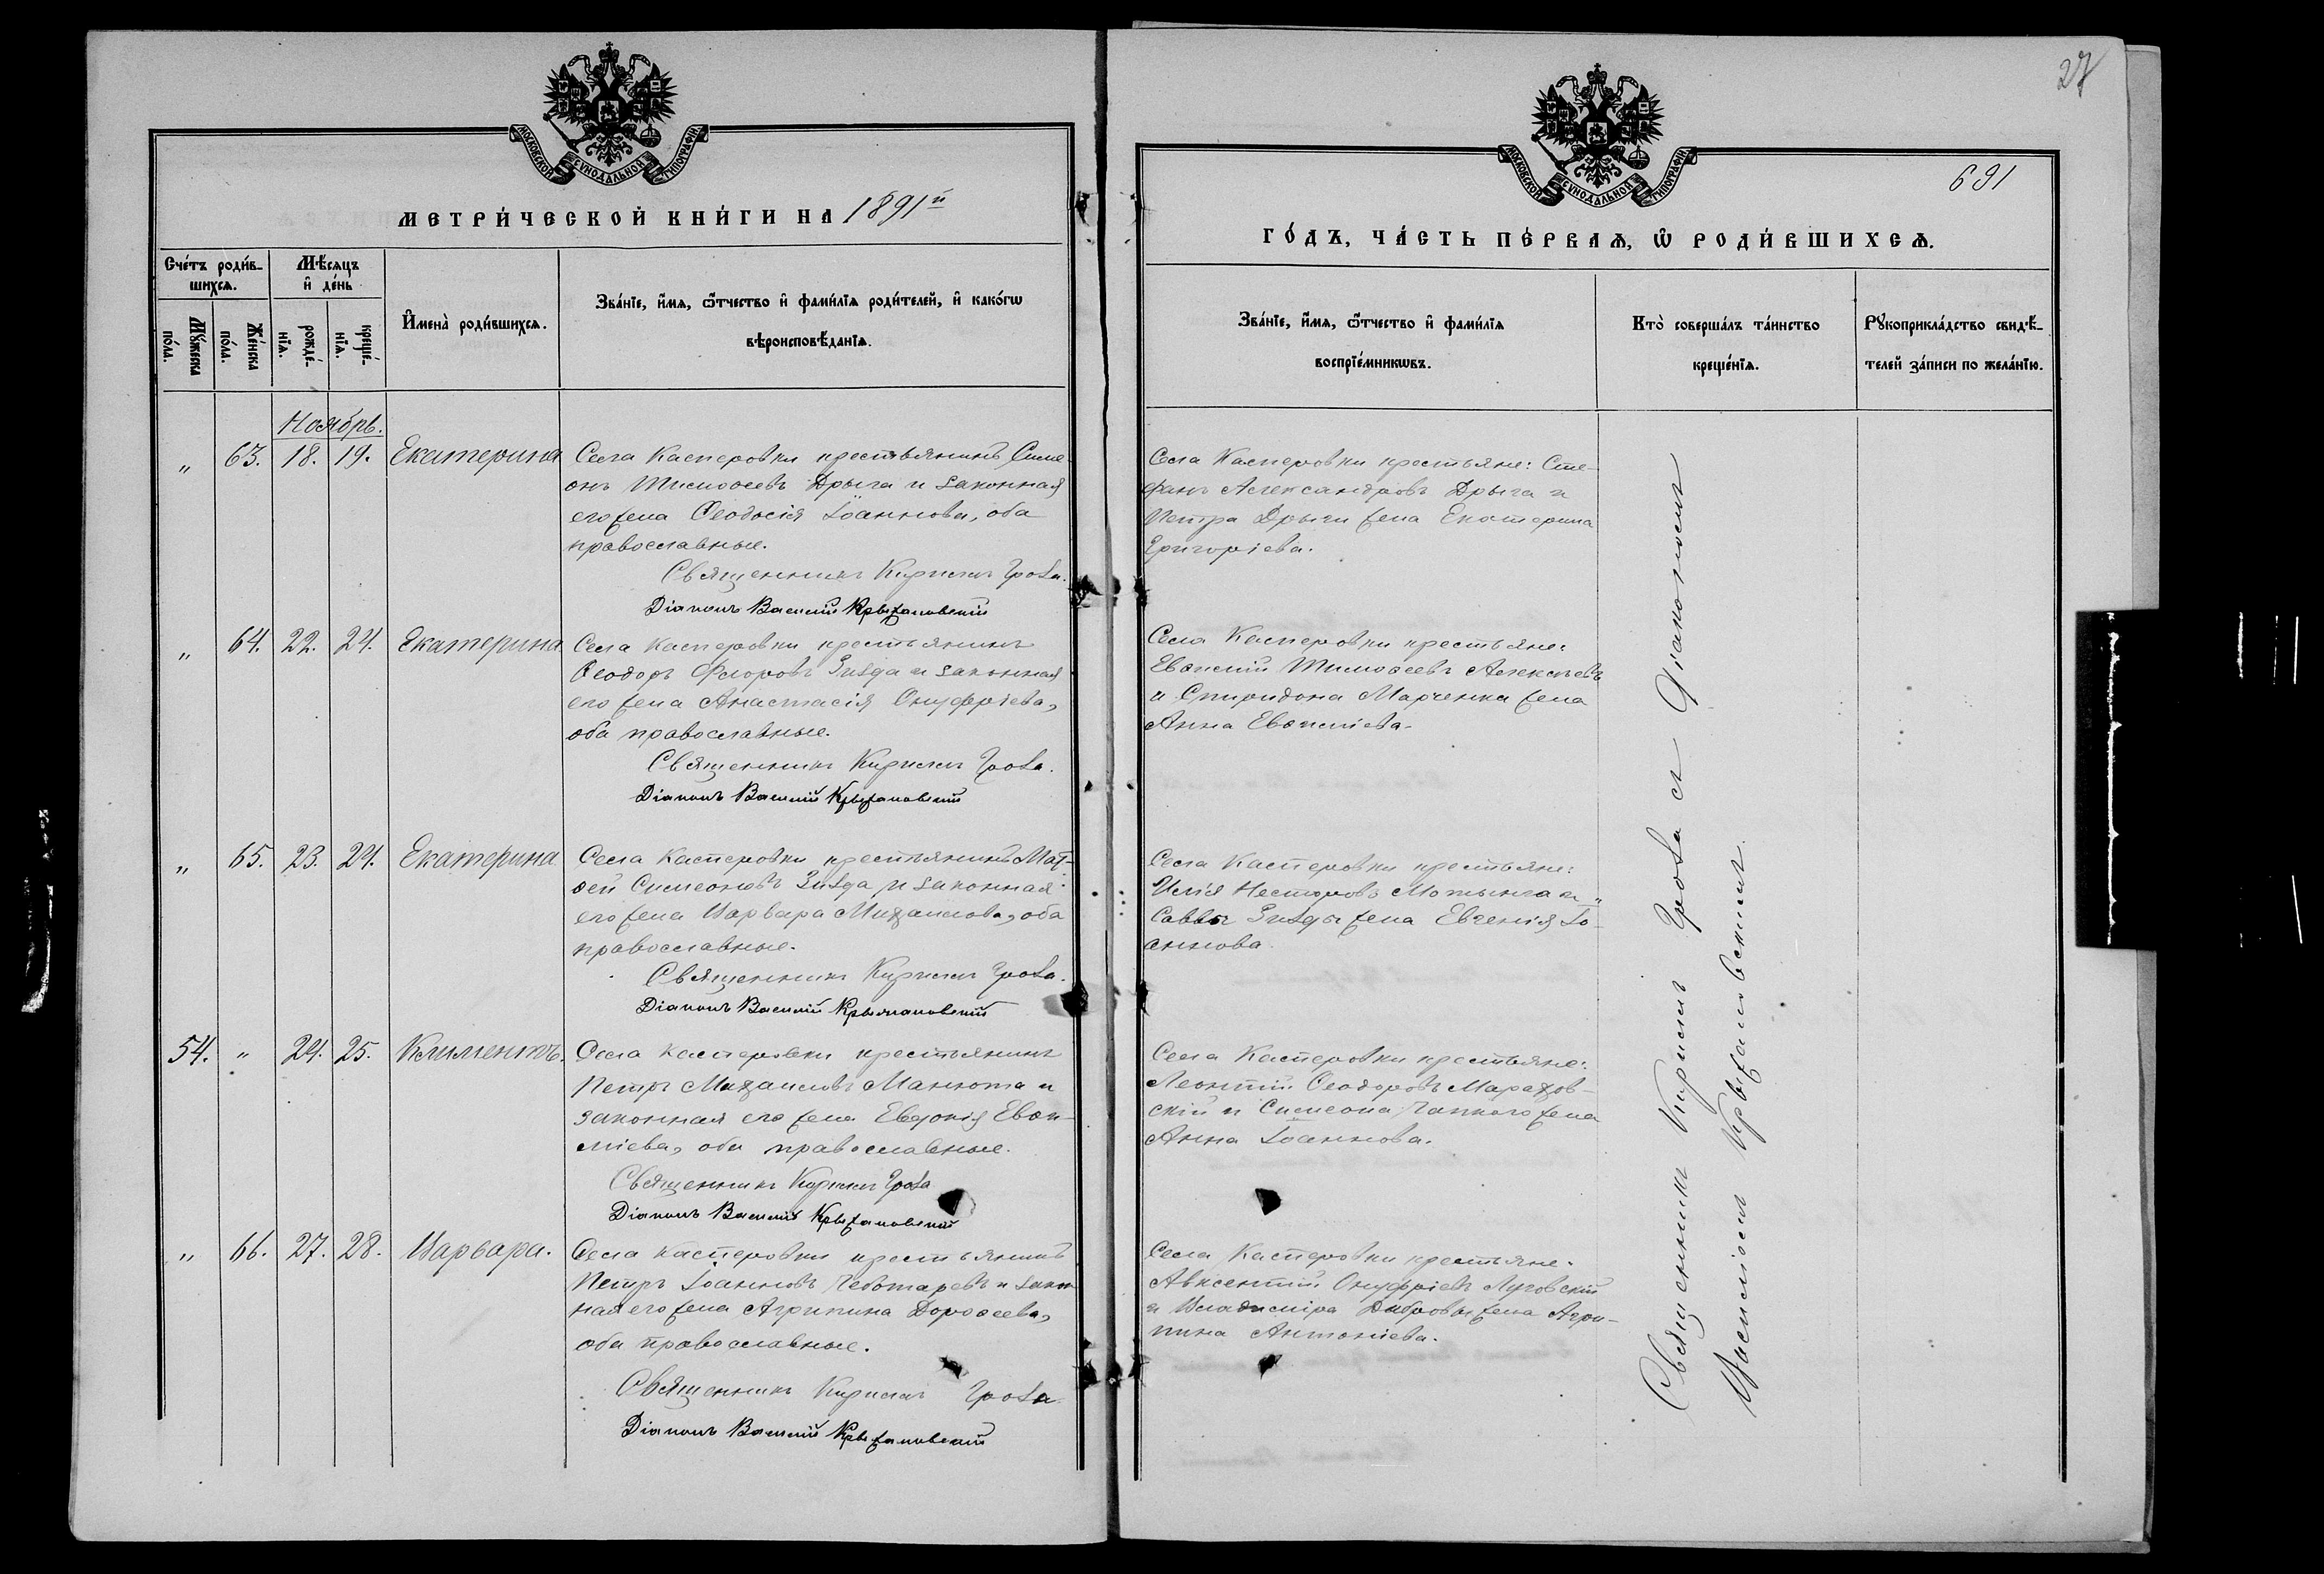 27
МОСКОВСКОЙ СѴНОДАЛЬНОЙ ТИПОГРАФІИ
МЕТРИ́ЧЕСКОЙ КНИ́ГИ НА 1891й
Сче́тъ роди́в-
шихсѧ.
Мѣ́сѧцъ
и҆ де́нь
Мꙋ́жеска
по́ла.
Же́нска
по́ла.
рожде́-
нїѧ.
креще́-
нїѧ.
И҆мена̀ роди́вшихсѧ.
Зва́нїе, и҆́мѧ, ѻ҆́тчество и҆ фами́лїѧ роди́телей, и҆ како́гѡ
вѣроисповѣ́данїѧ.
Ноябрь.
„ 63. 18. 19. Екатерина
Села Касперовки крестьянинъ Симе-
онъ Тимоѳеевъ Дрыга и законная
его жена Ѳеодосія Іоаннова, оба
православные.
Священникъ Кириллъ Гроза.
Діаконъ Василій Крыжановскій
„ 64. 22. 24. Екатерина
Села Касперовки крестьянинъ
Ѳеодоръ Флоровъ Гизда и законная
его жена Анастасія Онуфріева,
оба православные.
Священникъ Кириллъ Гроза.
Діаконъ Василій Крыжановскій
„ 65. 23. 24. Екатерина
Села Касперовки крестьянинъ Мат-
ѳей Симеоновъ Гизда и законная
его жена Варвара Михаилова, оба
православные.
Священникъ Кириллъ Гроза.
Діаконъ Василій Крыжановскій
54. „ 24. 25. Климентъ.
Села Касперовки крестьянинъ
Петръ Михаиловъ Манюта и
законная его жена Евдокія Евѳи-
міева, оба православные.
Священникъ Кириллъ Гроза
Діаконъ Василій Крыжановскій
„ 66. 27. 28. Варвара.
Села Касперовки крестьянинъ
Петръ Іоанновъ Чеботаревъ и закон-
ная его жена Агрипина Дороѳеева,
оба православные.
Священникъ Кириллъ Гроза
Діаконъ Василій Крыжановскій
МОСКОВСКОЙ СѴНОДАЛЬНОЙ ТИПОГРАФІИ
691
ГО́ДЪ, ЧА́СТЬ ПЕ́РВАѦ, Ѡ҆ РОДИ́ВШИХСѦ.
Зва́нїе, и҆́мѧ, ѻ҆́тчество и҆ фами́лїѧ
воспрїе́мникѡвъ.
Кто̀ соверша́лъ та́инство
креще́нїѧ.
Рꙋкоприкла́дство свидѣ́-
телей за́писи по жела́нїю.
Села Касперовки крестьяне: Сте-
фанъ Александровъ Дрыга и
Петра Дрыги жена Екатерина
Григоріева.
Села Касперовки крестьяне:
Евѳимій Тимоѳеевъ Алексѣевъ
и Спиридона Марченка жена
Анна Евѳиміева.
Села Касперовки крестьяне:
Илія Несторовъ Мотынга и
Саввы Гизды жена Евгенія Іо-
аннова.
Села Касперовки крестьяне:
Леонтій Ѳеодоровъ Мараховскій
-скій и Симеона жена
Анна Іоаннова.
Села Касперовки крестьяне.
Авксентій Онуфріевъ Луговскій
и Владиміра Дибровы жена Агри-
пина Антоніева.
Священникъ Кириллъ Гроза съ Діакономъ
Василіемъ Крыжановскимъ.